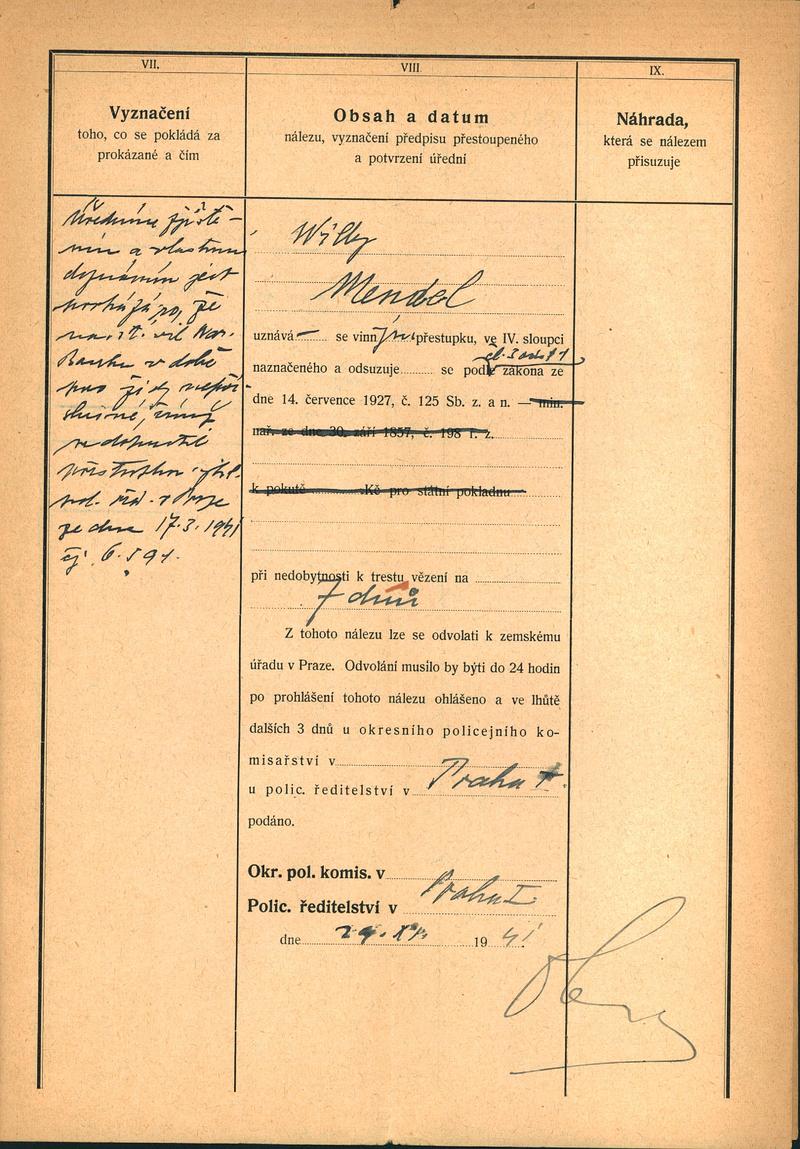 VII.
Vyznačení
toho, co se pokládá za
prokázané a čím
Úředním zjiště-
ním a vlastním
doznáním jest
prokázáno, že
v době
pro židy nepří-
stupné, čímž
se dopustil
přestupku vyhl.
pol. řed. v Praze
ze dne 17.3.1941
čj.
VIII.
Obsah a datum
nálezu, vyznačení předpisu přestoupeného
a potvrzení úřední
Willy
Mendel
uznává — se vinným přestupku, ve IV. sloupci
čl. 3 odst 1
naznačeného a odsuzuje se podle zákona ze
dne 14. července 1927, č. 125 Sb. z. a n. — min.
nař. ze dne 30. září 1857, č. 198 ř. z.
k pokutě Kč pro státní pokladnu
při nedobytnosti k trestu vězení na
7 dnů
Z tohoto nálezu lze se odvolati k zemskému
úřadu v Praze. Odvolání musilo by býti do 24 hodin
po prohlášení tohoto nálezu ohlášeno a ve lhůtě
dalších 3 dnů u okresního policejního ko-
misařství v
u polic. ředitelství v Praha I
podáno.
Okr. pol. komis. v
Polic. ředitelství v Praha I
dne 29. XI. 1941.
IX.
Náhrada,
která se nálezem
přisuzuje